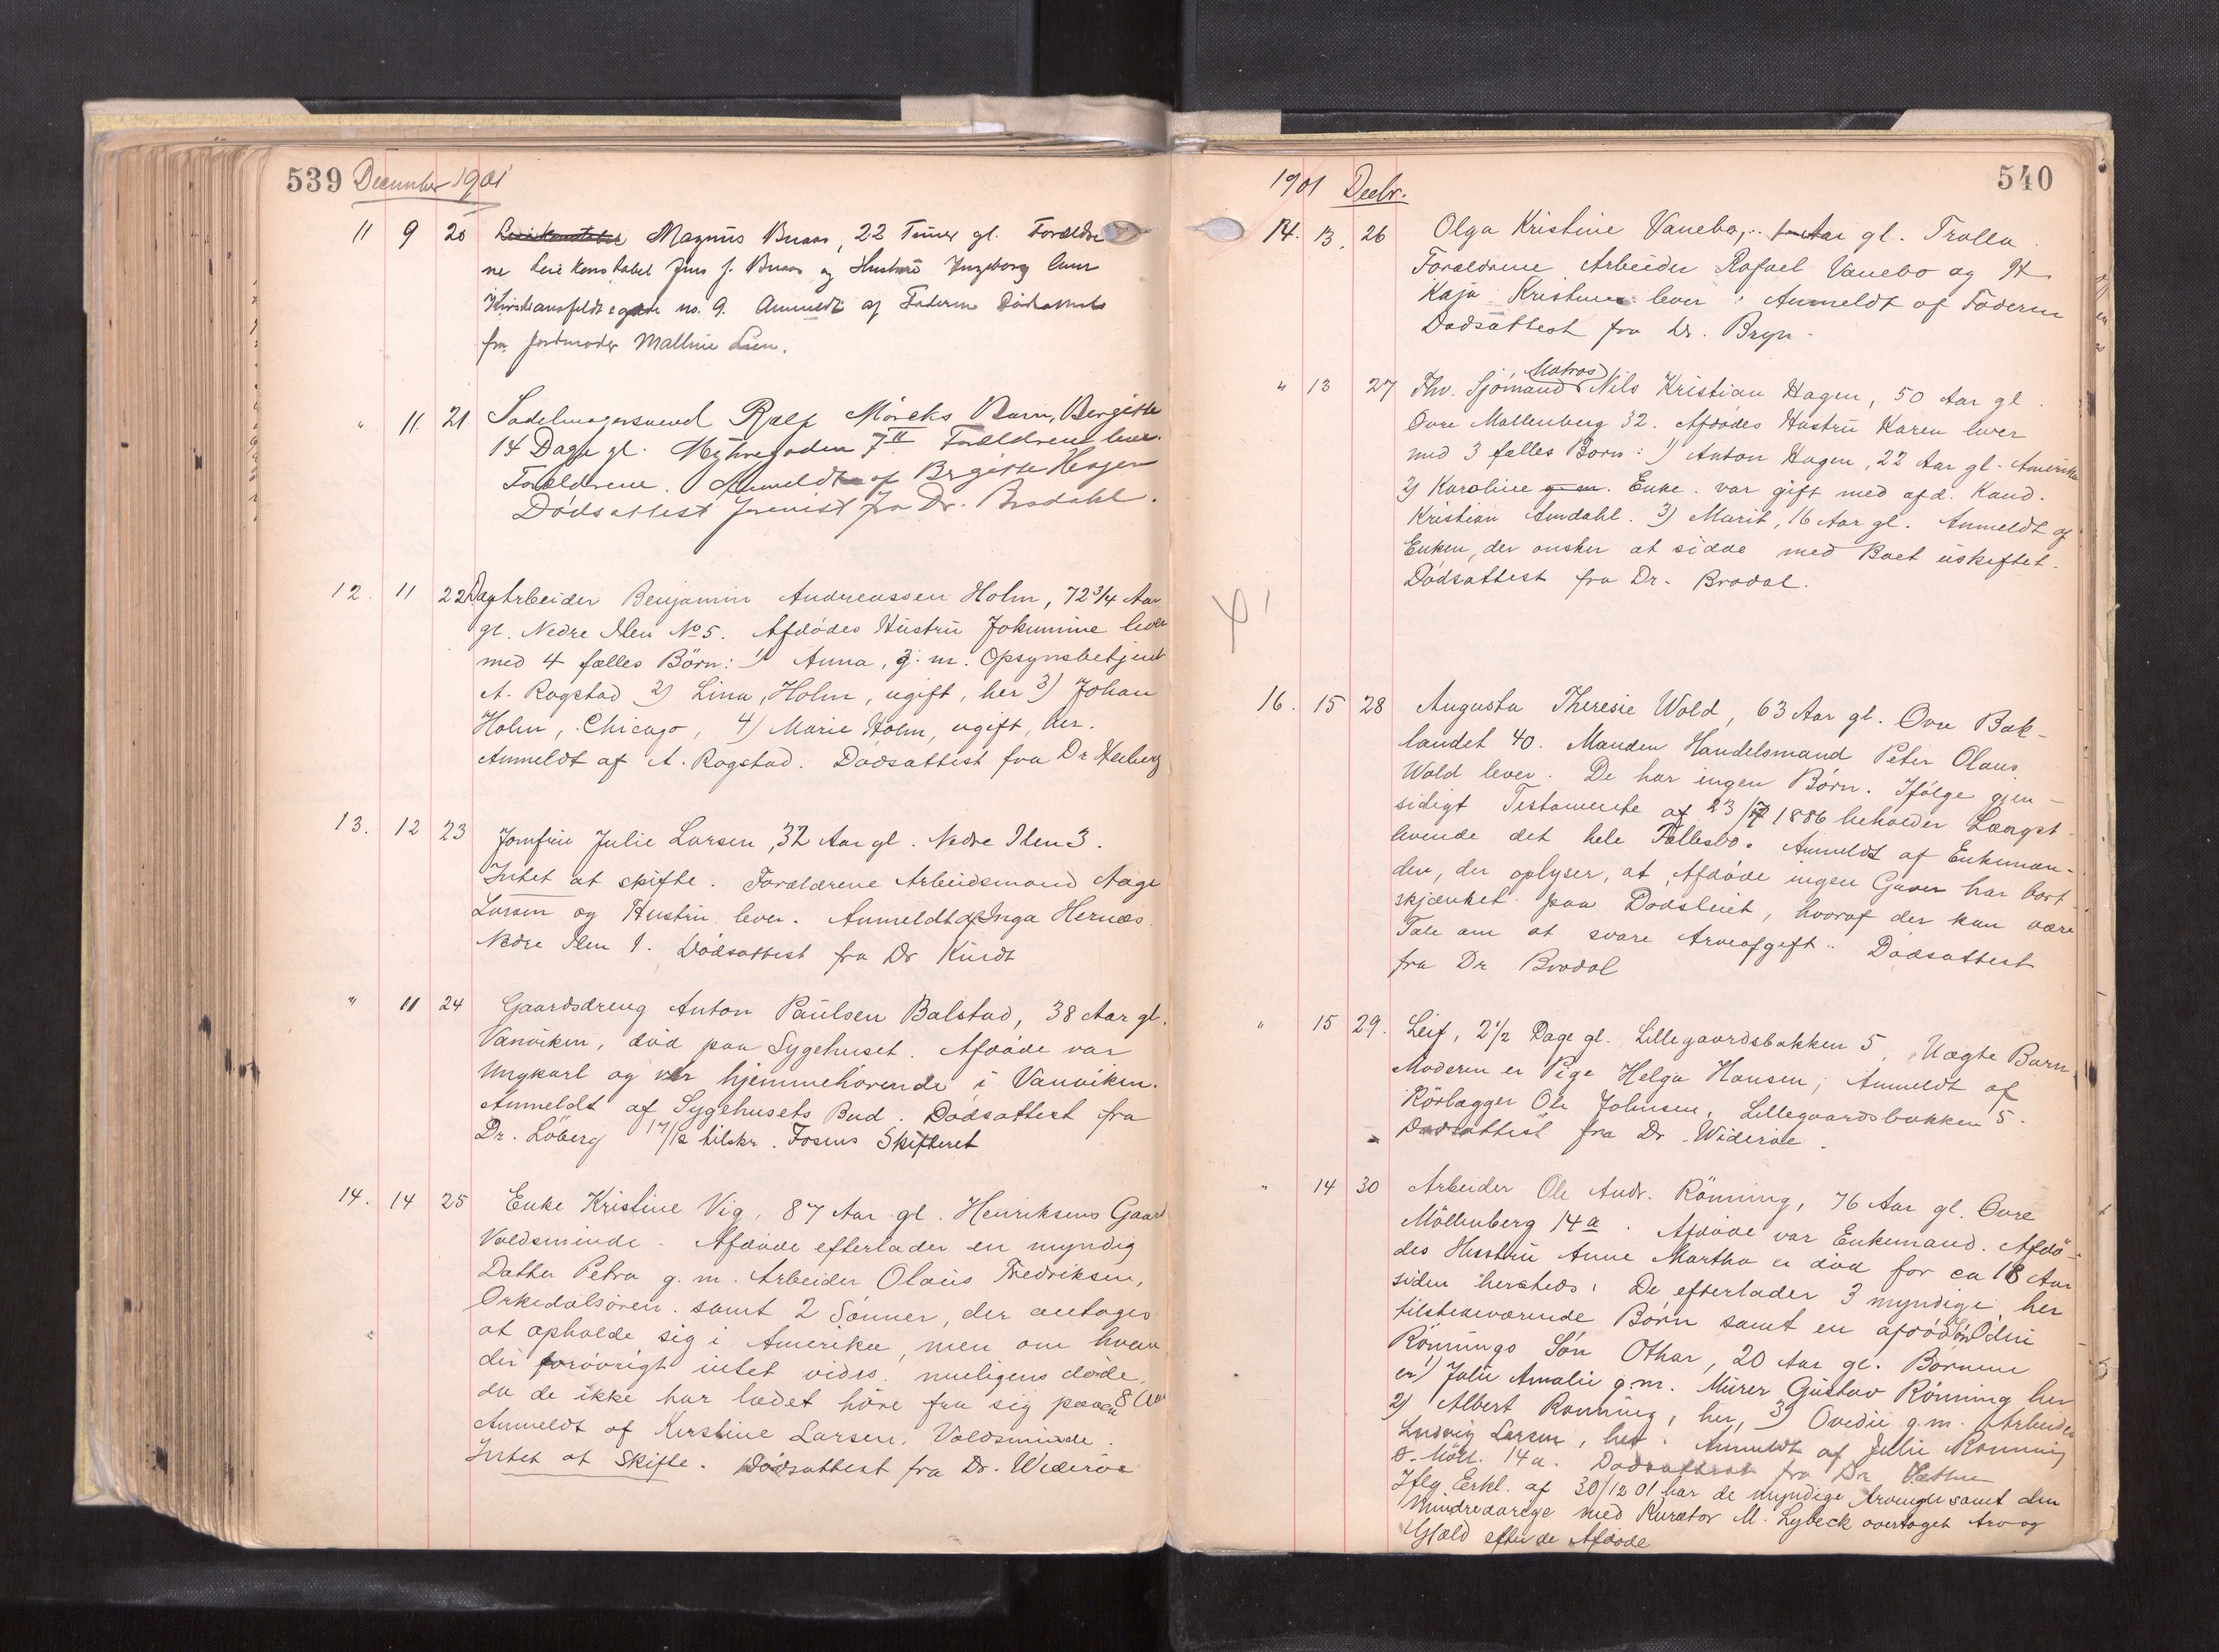 539 December 1901
11 9 20 Leiekonstabel Magnus Buaas, 22 Timer gl. Forældre
ne Leiekonstabel Jens J. Buaas og Hustru Ingeborg lever
Kristiansfeldtsgade no. 9. Anmeldt af Faderen Dödsattest
fra Jordmoder Malline Lien.
" 11. 21 Sadelmagersvend Rolf Mörchs Barn, Bergitte
14 Dage gl. 7 II Forældrene lever.
Forældrene. Anmeldt af Birgitte Hegjem
Dödsattest forevist fra Dr. Brodahl.
12. 11 22 Dagarbeider Benjamin Andreassen Holm, 72 3/4 Aar
gl. Nedre Ilen No 5. Afdödes Hustru Jokumine lever
med 4 fælles Börn: 1) Anna, g. m. Opsynsbetjent
A. Rogstad 2) Lina, Holm, ugift, her 3) Johan
Holm, Chicago, 4) Marie Holm, ugift, her.
Anmeldt af A. Rogstad. Dödsattest fra Dr Heiberg
13. 12 23 Jomfru Julie Larsen, 32 Aar gl. Nedre Ilen 3.
Intet at skifte. Forældrene Arbeidsmand Aage
Larsen og Hustru lever. Anmeldt af Inga Hernæs.
Nedre Ilen 1. Dödsattest fra Dr Kindt
" 11 24 Gaardsdreng Anton Paulsen Balstad, 38 Aar gl.
Vanviken, död paa Sygehuset. Afdöde var
Ungkarl og var hjemmehörende i Vanviken.
Anmeldt af Sygehusets Bud. Dödsattest fra
Dr. Löberg 17/12 tilskr. Fosens Skifteret
14. 14 25 Enke Kristine Vig, 87 Aar gl. Henriksens Gaard
Voldsminde. Afdöde efterlader en myndig
Datter Petra g. m. Arbeider Olaus Fredriksen,
Orkedalsören. samt 2 Sönner, der antages
at opholde sig i Amerika, men om hvem
der forövrigt intet vides. muligens döde,
da de ikke har ladet höre fra sig paa ca 8 Aar
Anmeldt af Kirstine Larsen, Voldsminde.
Intet at Skifte. Dödsattest fra Dr. Wideröe
1901 Decbr. 540
14. 13. 26 Olga Kristine Vanebo, Aar gl. Trolla.
Forældrene Arbeider Rafael Vanebo og H
Kaja Kristine lever. Anmeldt af Faderen
Dödsattest fra Dr. Bryn.
" 13 27 Fhv. Sjömand Matros Nils Kristian Hagen, 50 Aar gl.
Övre Möllenberg 32. Afdödes Hustru Karen lever
med 3 fælles Börn: 1) Anton Hagen, 22 Aar gl. Amerika
2) Karoline g. m. Enke. var gift med afd. Kand.
Kristian Amdahl. 3) Marit, 16 Aar gl. Anmeldt af
Enken, der önsker at sidde med Boet uskiftet.
Dödsattest fra Dr. Brodal.
16. 15 28 Augusta Theresie Wold, 63 Aar gl. Övre Bak-
landet 40. Manden Handelsmand Peter Olaus
Wold lever. De har ingen Börn. Ifölge gjen-
sidigt Testamente af 23/7 1886 beholder Længst-
levende det hele Fællesbo. Anmeldt af Enkeman-
den, der oplyser, at Afdöde ingen Gaver har bort-
skjænket paa Dödsleiet, hvoraf der kan være
Tale om at svare Arveafgift. Dödsattest
fra Dr Brodal
" 15 29. Leif, 2 1/2 Dage gl. Lillegaardsbakken 5, Uægte Barn,
Moderen er Pige Helga Hansen; Anmeldt af
Rörlægger Ole Johnsen, Lillegaardsbakken 5.
Dödsattest fra Dr. Wideröe.
" 14 30 Arbeider Ole Andr. Rönning, 76 Aar gl. Övre
Möllenberg 14 a. Afdöde var Enkemand. Afdö-
des Hustru Anne Martha er död for ca 18 Aar
siden hersteds. De efterlader 3 myndige, her
tilstedeværende Börn samt en afdöd Sön Odin
Rönnings Sön Othar, 20 Aar gl. Börnene
er 1) Julie Amalie g. m. Murer Gustav Rönning her
2) Albert Rönning, her, 3) Ovedie g. m. Arbeider
Ludvig Larsen, her. Anmeldt af Julie Rönning
Ö. Möll. 14 a. Dödsattest fra Dr
Iflg Erkl. af 30/12 01 har de myndige Arvinger samt den
Mindreaarige med Kurator M. Lybeck overtaget Arv og
Gjæld efter de Afdöde